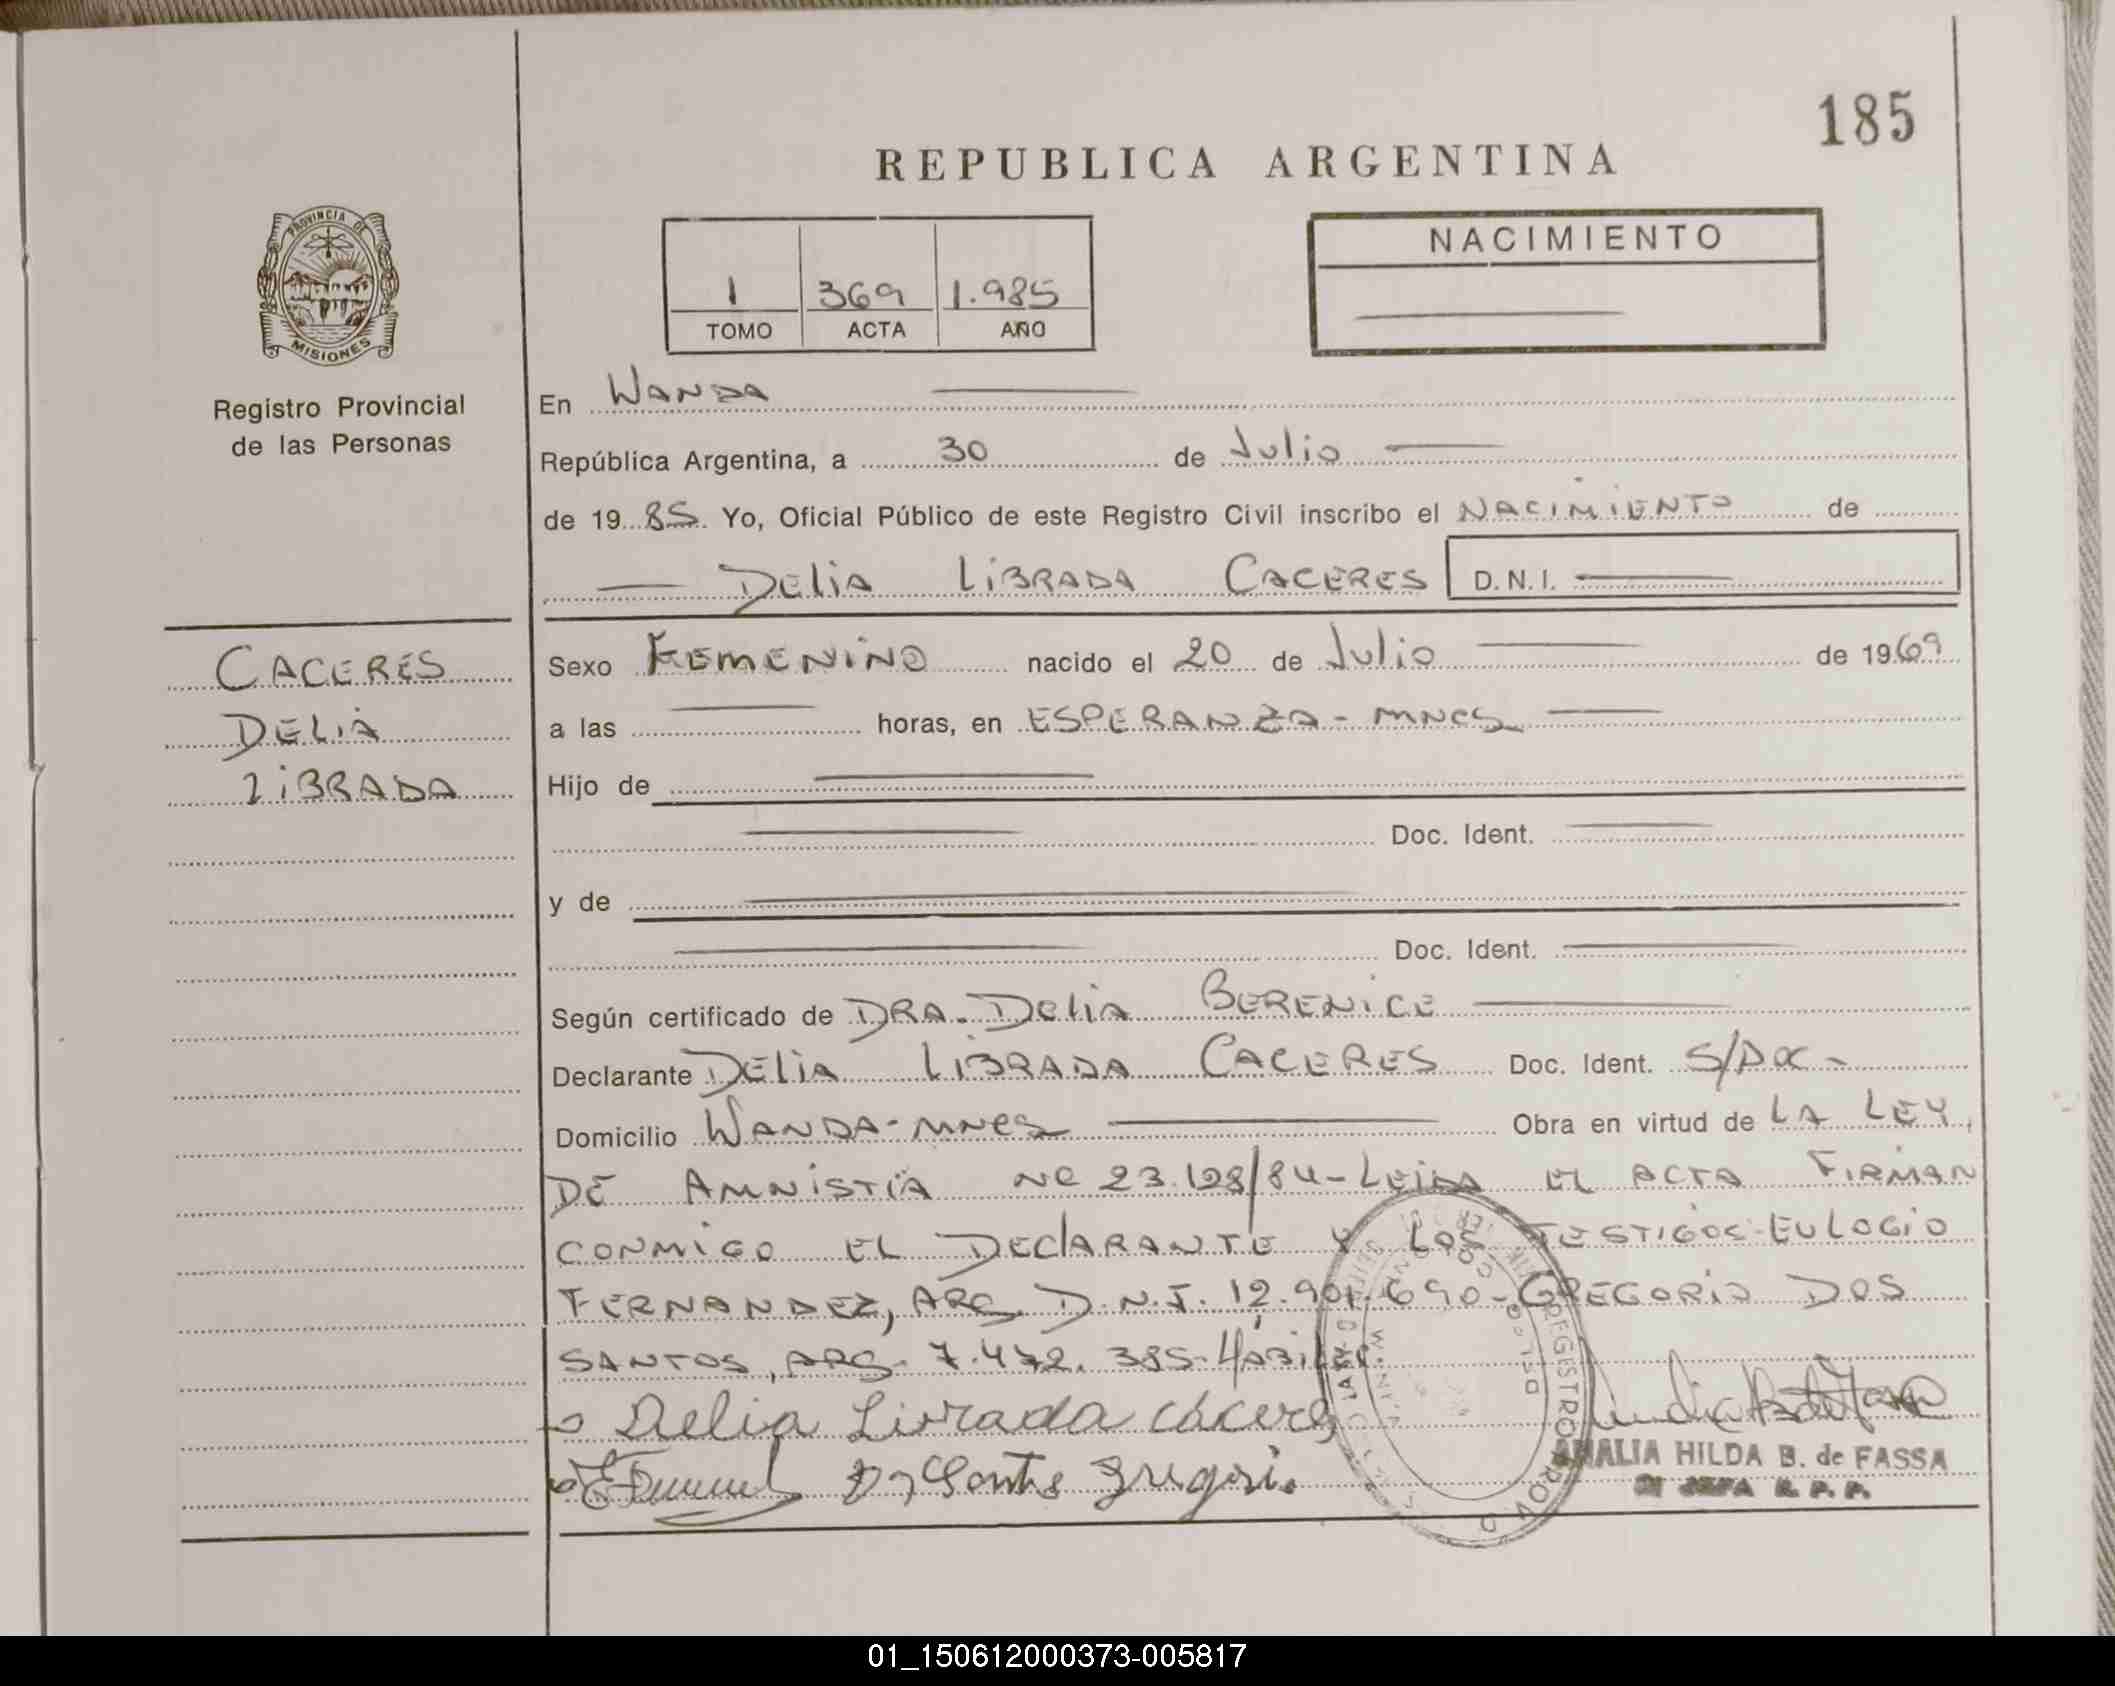 185
REPUBLICA ARGENTINA
PROVINCIA DE
MISIONES
Registro Provincial
de las Personas
1 369 1.985
TOMO ACTA AÑO
NACIMIENTO
En WANDA
República Argentina, a 30 de Julio
de 1985 Yo, Oficial Público de este Registro Civil inscribo el NACIMIENTO de
DELIA LIBRADA CACERES D.N.I.
CACERES
DELIA
LIBRADA
Sexo FEMENINO nacido el 20 de Julio de 1969
a las horas, en ESPERANZA - MNES
Hijo de
Doc. Ident.
y de
Doc. Ident.
Según certificado de DRA. DELIA BERENICE
Declarante DELIA LIBRADA CACERES Doc. Ident. S/DOC -
Domicilio WANDA - MNES Obra en virtud de LA LEY
DE AMNISTIA Nº 23.128/84 - LEIDA EL ACTA FIRMAN
CONMIGO EL DECLARANTE Y LOS TESTIGOS - EULOGIO
FERNANDEZ, ARG. D.N.I. 12.901.690 - GREGORIO DOS
SANTOS, ARG. 7.472.385 - HABILES.
Delia Livrada cáceres
Dos Santos Gregorio
AMALIA HILDA B. de FASSA
JEFA R. P. P.
01_150612000373-005817